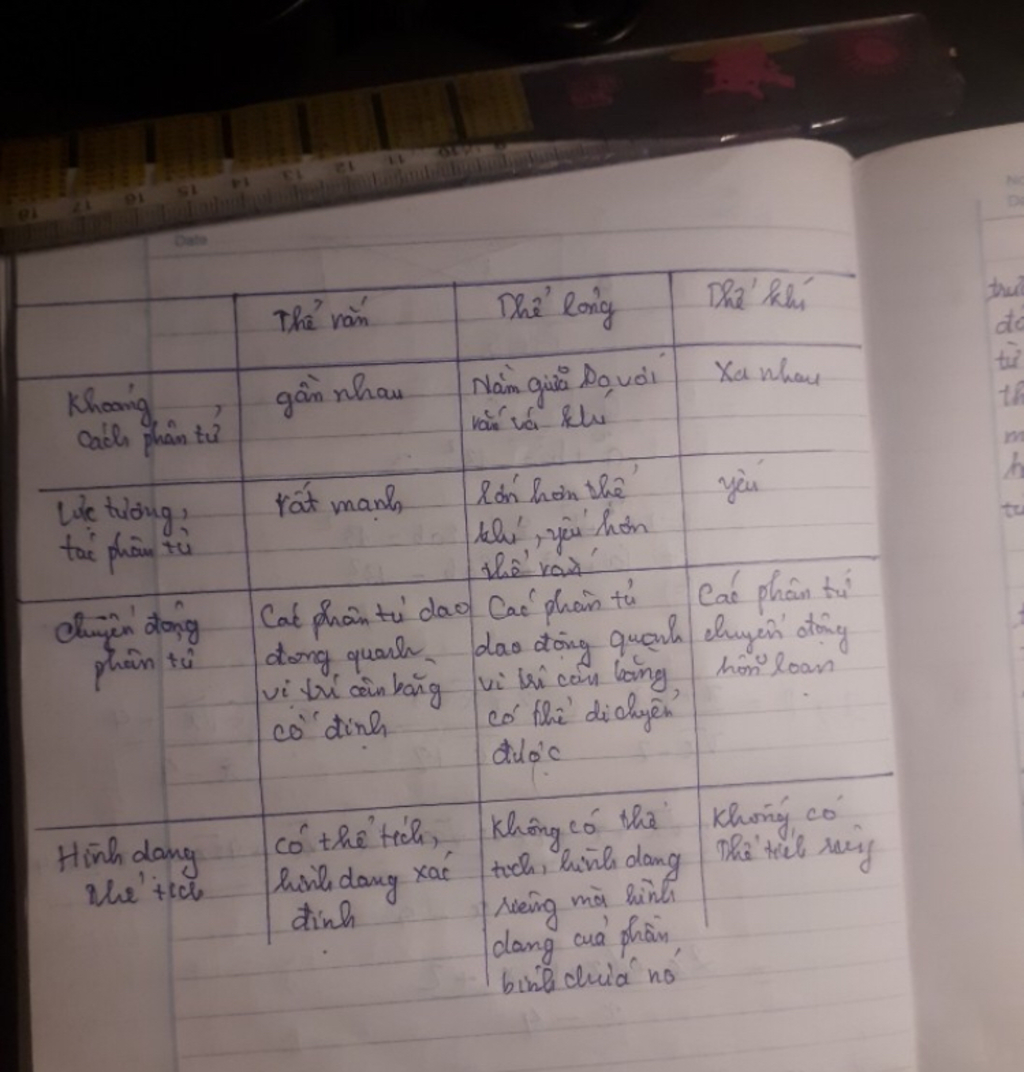 Date
Thể rắn
Thể lỏng
Thể khí
Khoảng
cách phân tử
gần nhau
Nằm giữa so với
rắn và khí
Xa nhau
Lực tương
tác phân tử
rất mạnh
lớn hơn thể
khí, yếu hơn
thể rắn
yếu
Chuyển động
phân tử
Các phân tử dao
động quanh
vị trí cân bằng
cố định
Các phân tử
dao động quanh
vị trí cân bằng
có thể di chuyển
được
Các phân tử
chuyển động
hỗn loạn
Hình dạng
thể tích
có thể tích,
hình dạng xác
định
không có thể
tích, hình dạng
riêng mà hình
dạng của phần
bình chứa nó
không có
thể tích riêng
18 17 16 15 14 13 12 11 10 9